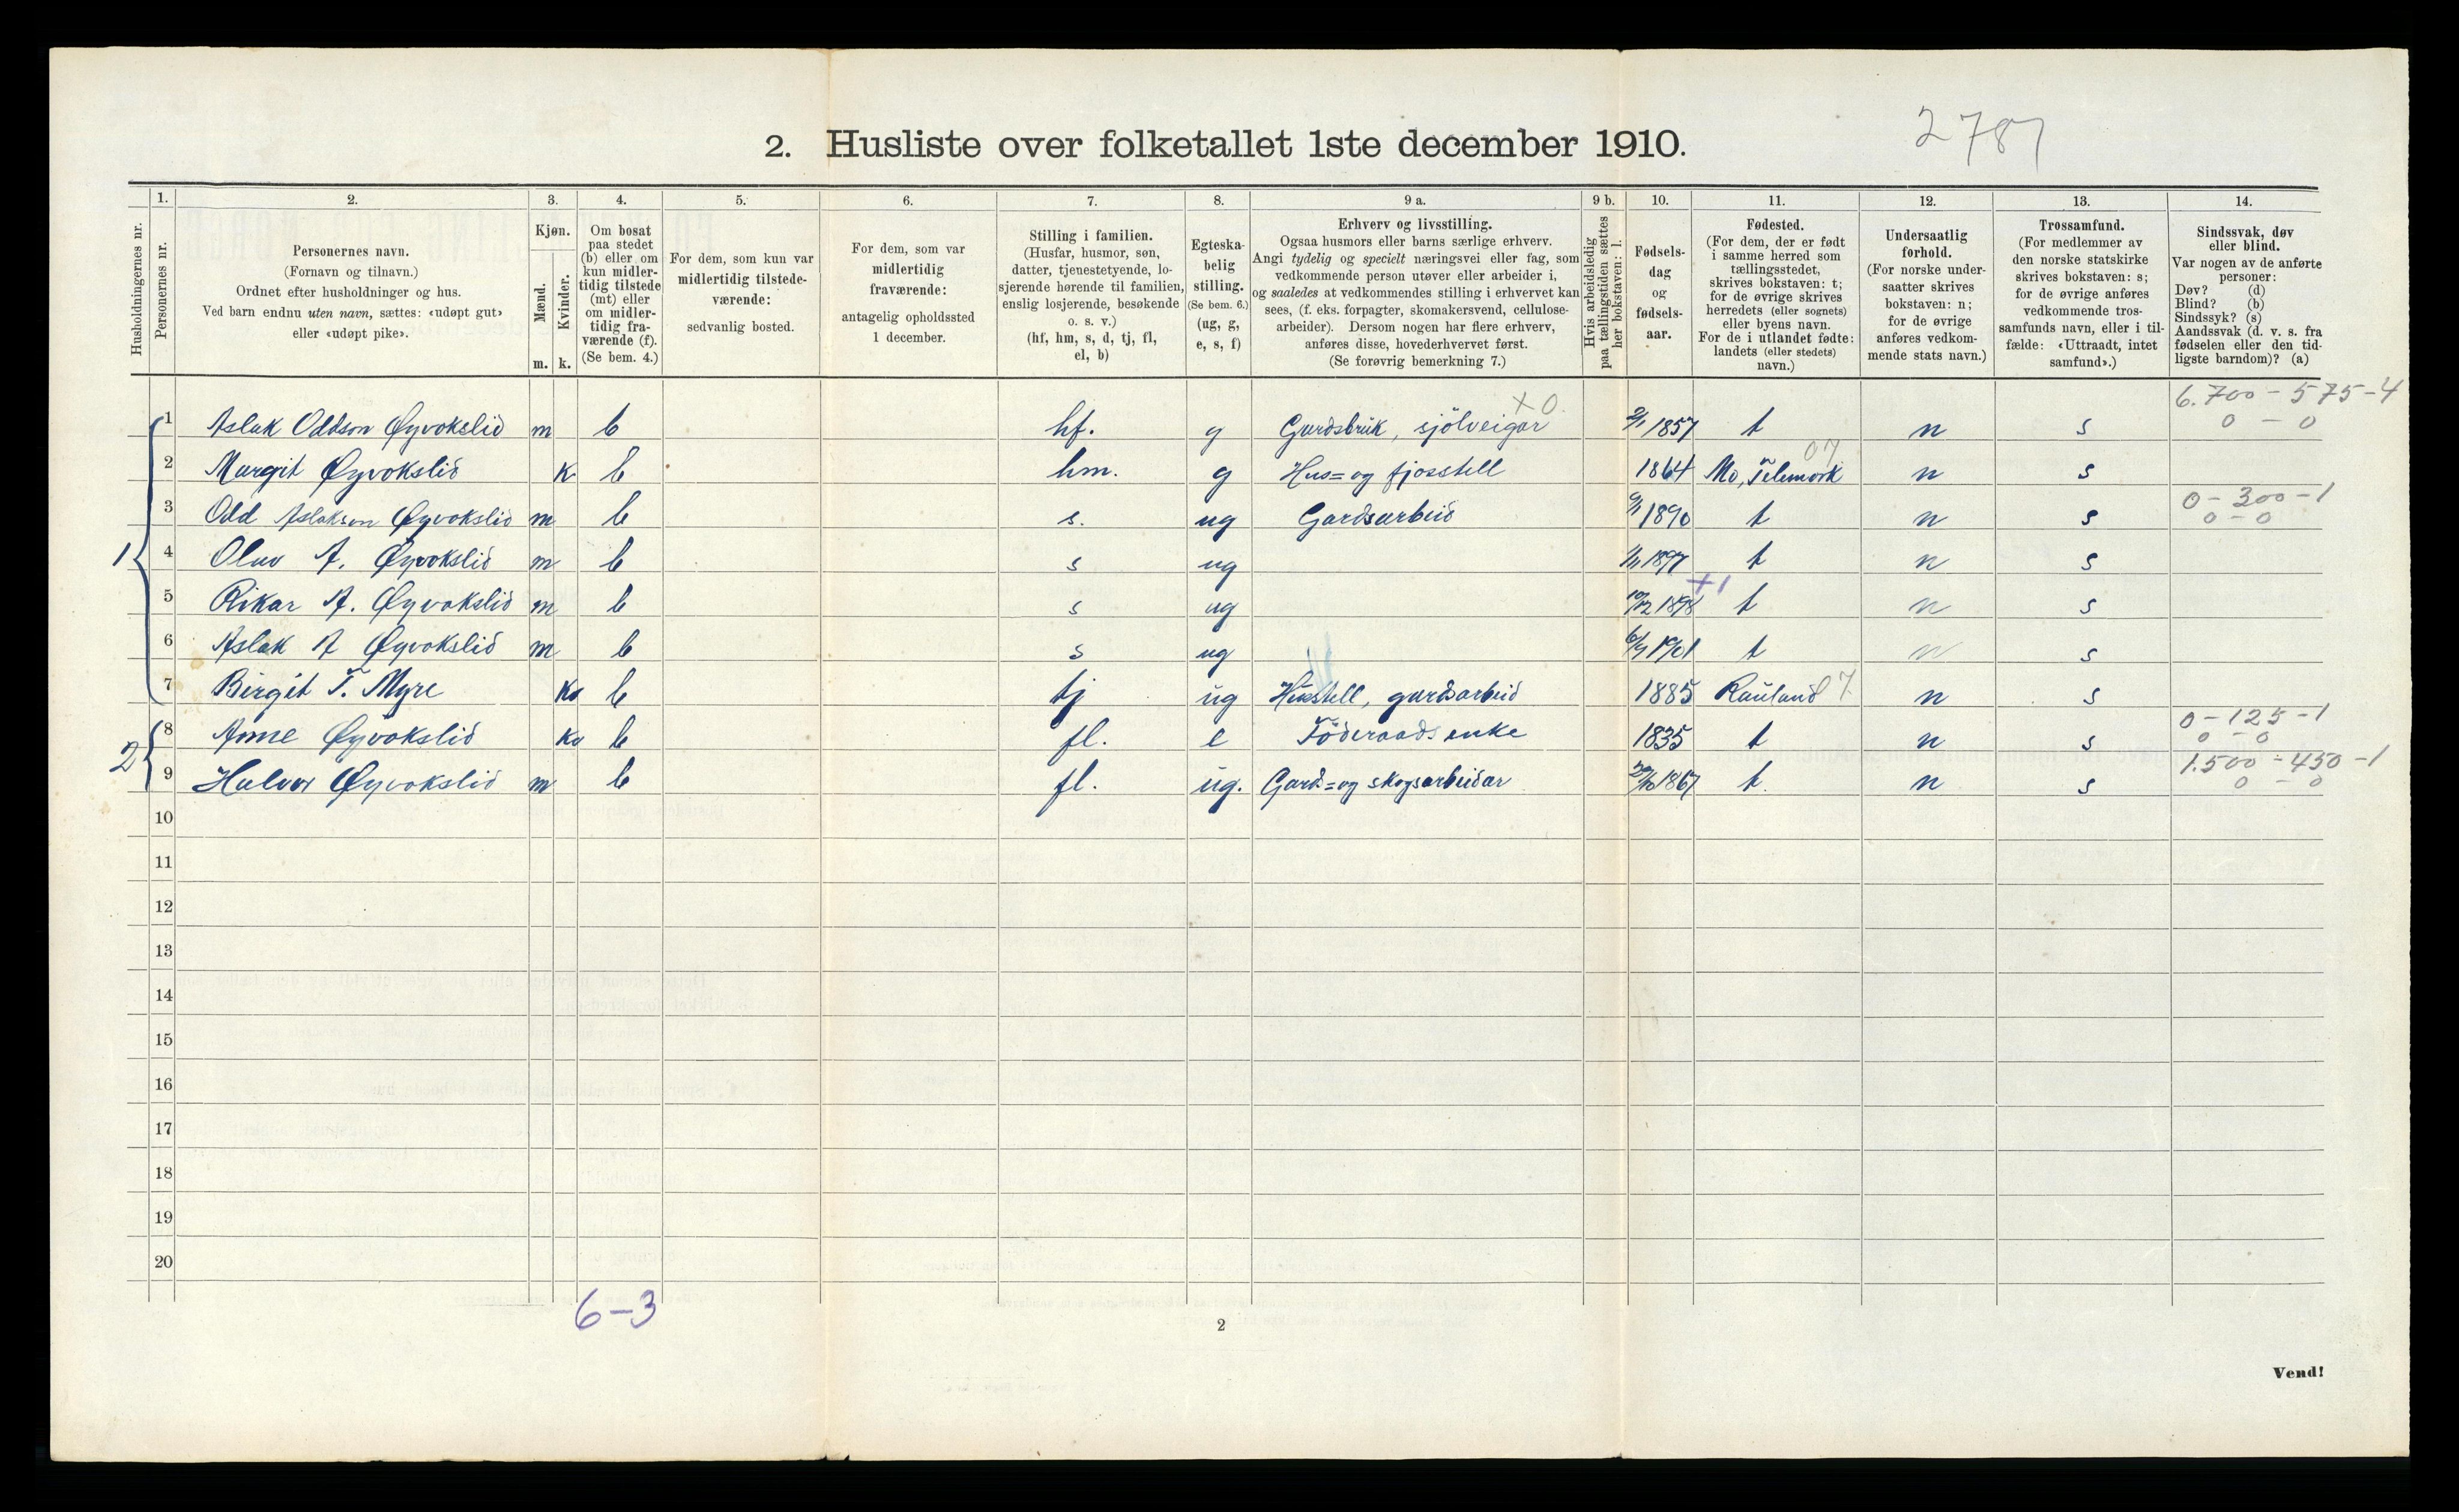 2787
2. Husliste over folketallet 1ste december 1910.
Husholdningernes nr.
1. Personernes nr.
2. Personernes navn. (Fornavn og tilnavn.) Ordnet efter husholdninger og hus. Ved barn endnu uten navn, sættes: «udøpt gut» eller «udøpt pike».
3. Kjøn. Mænd. m. Kvinder. k.
4. Om bosat paa stedet (b) eller om kun midlertidig tilstede (mt) eller om midlertidig fraværende (f). (Se bem. 4.)
5. For dem, som kun var midlertidig tilstedeværende: sedvanlig bosted.
6. For dem, som var midlertidig fraværende: antagelig opholdssted 1 december.
7. Stilling i familien. (Husfar, husmor, søn, datter, tjenestetyende, losjerende hørende til familien, enslig losjerende, besøkende o. s. v.) (hf, hm, s, d, tj, fl, el, b)
8. Egteskabelig stilling. (Se bem. 6.) (ug, g, e, s, f)
9 a. Erhverv og livsstilling. Ogsaa husmors eller barns særlige erhverv. Angi tydelig og specielt næringsvei eller fag, som vedkommende person utøver eller arbeider i, og saaledes at vedkommendes stilling i erhvervet kan sees, (f. eks. forpagter, skomakersvend, cellulosearbeider). Dersom nogen har flere erhverv, anføres disse, hovederhvervet først. (Se forøvrig bemerkning 7.)
9 b. Hvis arbeidsledig paa tællingstiden sættes her bokstaven: l.
10. Fødselsdag og fødselsaar.
11. Fødested. (For dem, der er født i samme herred som tællingsstedet, skrives bokstaven: t; for de øvrige skrives herredets (eller sognets) eller byens navn. For de i utlandet fødte: landets (eller stedets) navn.)
12. Undersaatlig forhold. (For norske undersaatter skrives bokstaven: n; for de øvrige anføres vedkommende stats navn.)
13. Trossamfund. (For medlemmer av den norske statskirke skrives bokstaven: s; for de øvrige anføres vedkommende trossamfunds navn, eller i tilfælde: «Uttraadt, intet samfund».)
14. Sindssvak, døv eller blind. Var nogen av de anførte personer: Døv? (d) Blind? (b) Sindssyk? (s) Aandssvak (d. v. s. fra fødselen eller den tidligste barndom)? (a)
6.700 - 575 - 4
1 1 Aslak Oddson Øyvokslid m b hf. g Gardsbruk, sjölveigar x 0. 2/1 1857 t n s 0 - 0
2 Margit Øyvokslid k b hm. g Hus= og fjosstell 1864 Mo, Telemork 07 n s
3 Odd Aslakson Øyvokslid m b s. ug Gardsarbeid 9/1 1890 t n s 0 - 300 - 1 0 - 0
4 Olav A. Øyvokslid m b s ug 1897 t n s
5 Rikar A. Øyvokslid m b s ug 10/12 1898 +1 t n s
6 Aslak A Øyvokslid m b s ug 1901 t n s
7 Birgit T. Myre k b tj ug Husstell, gardsarbeid 1885 Rauland 7 n s
2 8 Anne Øyvokslid k b fl. e Föderaadsenke 1835 t n s 0 - 125 - 1 0 - 0
9 Halvor Øyvokslid m b fl. ug. Gard= og skogsarbeidar 1867 t. n s 1.500 - 450 - 1 0 - 0
10
11
12
13
14
15
16
17
18
19
20
6-3
2
Vend!